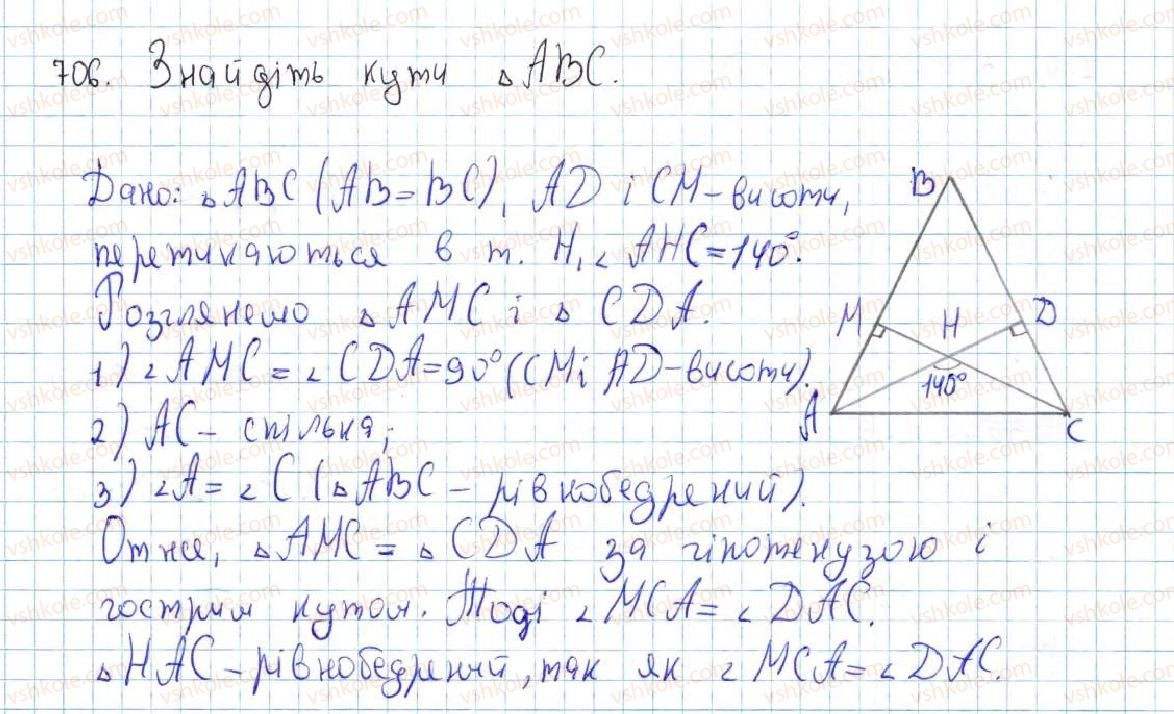 706. Знайдіть кути △ABC.
Дано: △ABC (AB=BC), AD і CM-висоти,
перетинаються в т. H, ∠AHC=140°.
Розглянемо △AMC і △CDA.
1) ∠AMC=∠CDA=90° (CM і AD-висоти).
2) AC- спільна;
3) ∠A=∠C (△ABC - рівнобедрений).
Отже, △AMC=△CDA за гіпотенузою і
гострим кутом. Тоді ∠MCA=∠DAC.
△HAC-рівнобедрений, так як ∠MCA=∠DAC.
B
M H D
140°
A C
vshkole.com